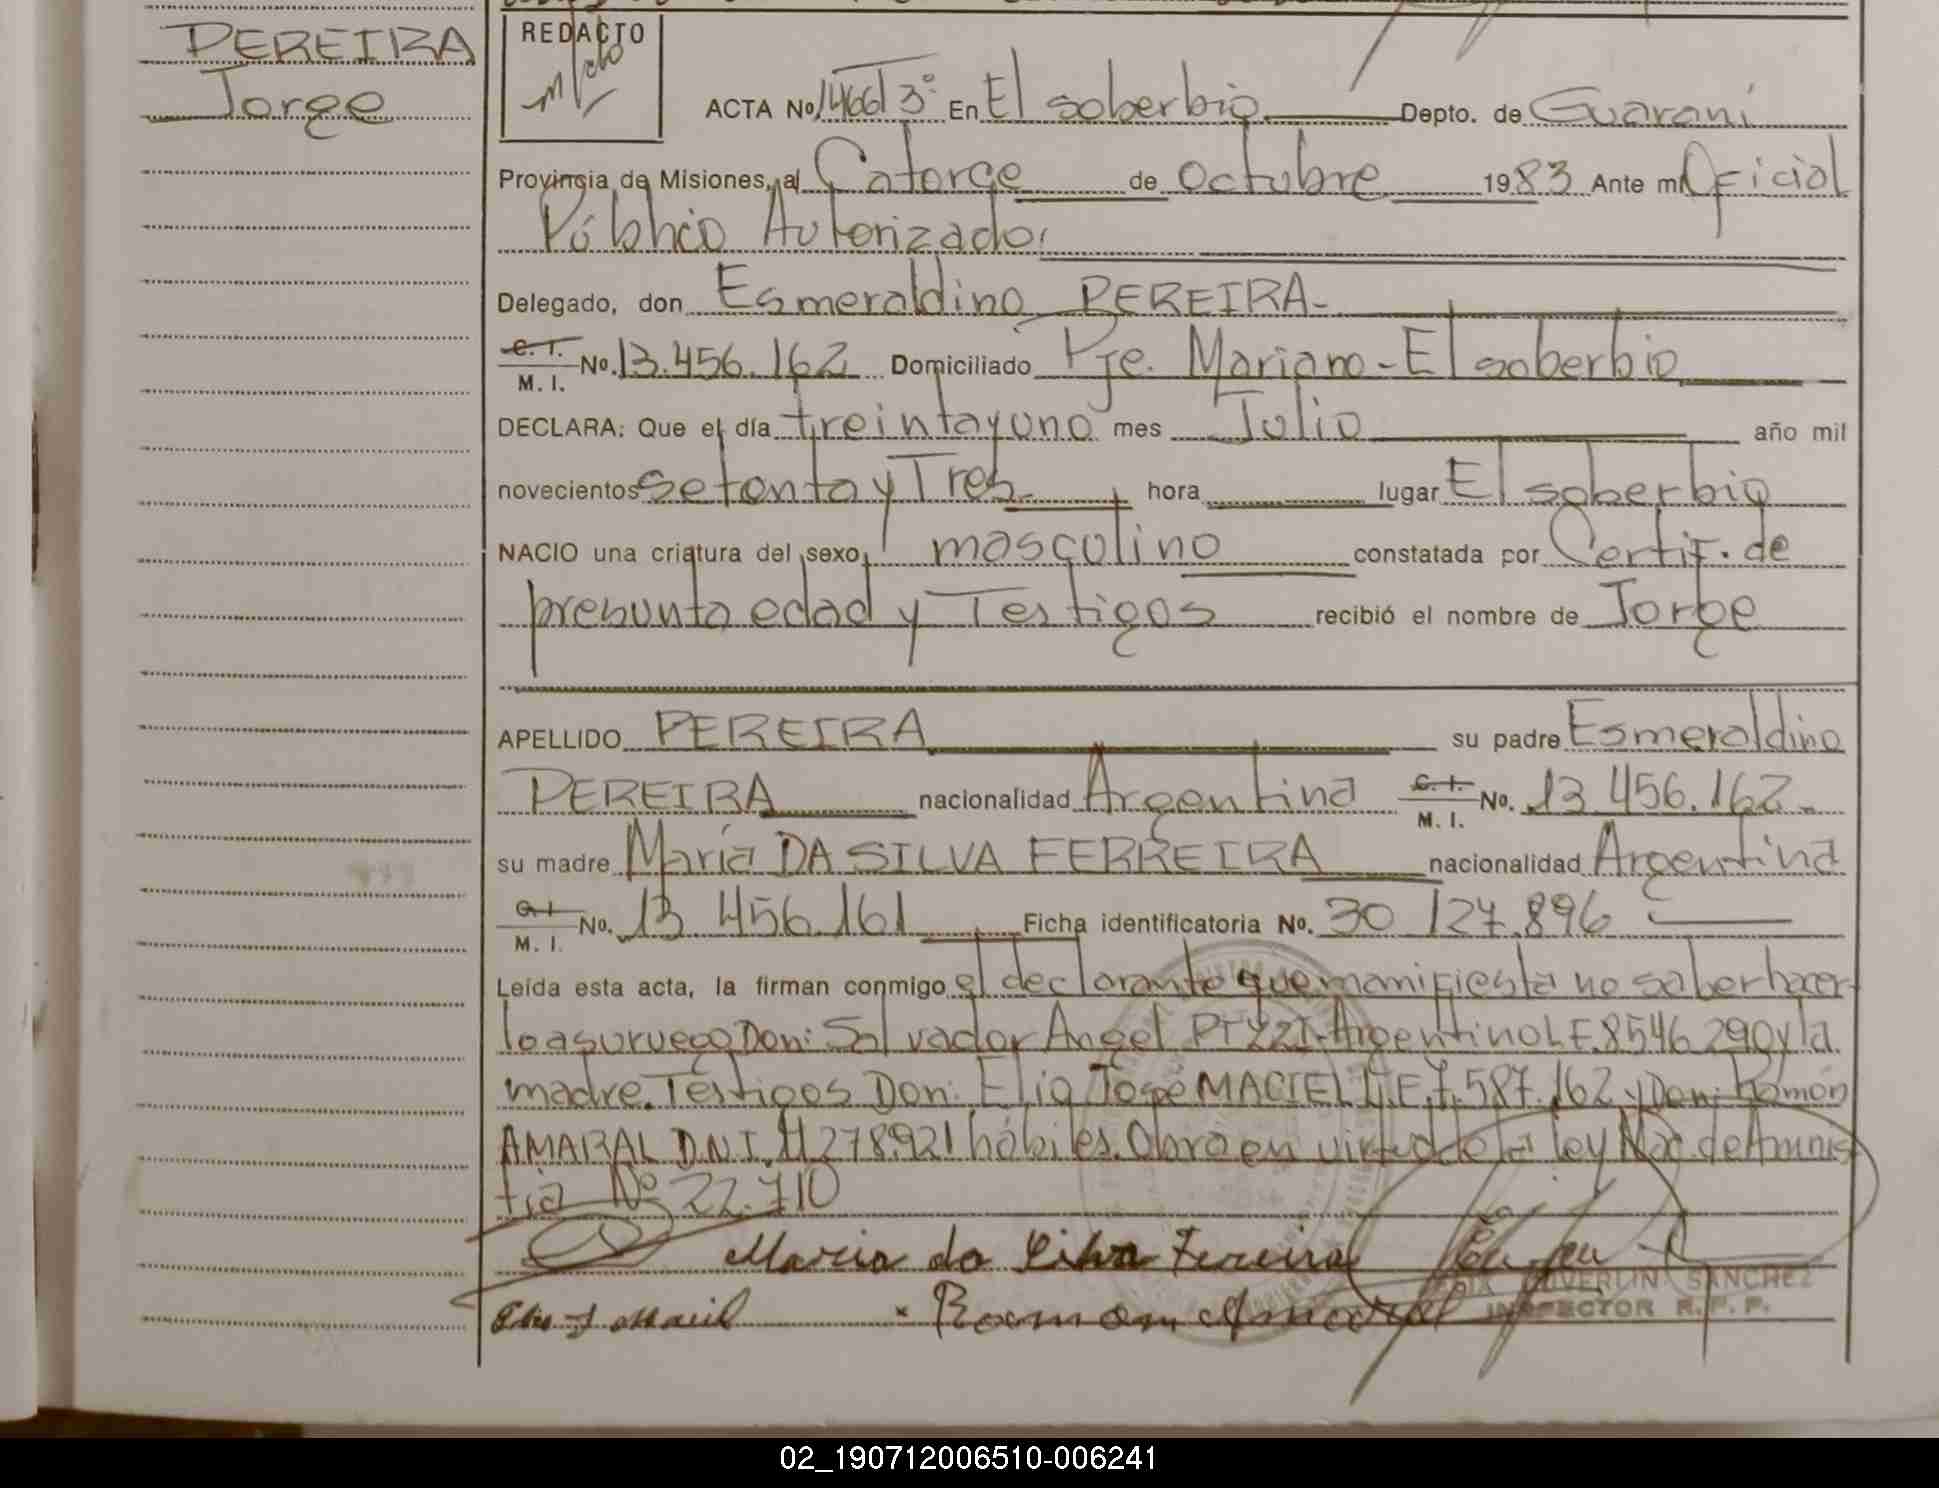 PEREIRA
Jorge
REDACTO
ACTA No 1466 T 3º En El soberbio Depto. de Guarani
Provincia de Misiones, al Catorce de octubre 1983 Ante mi Oficial
Público Autorizado
Delegado, don Esmeraldino PEREIRA-
C. I. M. I. No. 13.456.162 Domiciliado Pje. Mariano - El soberbio
DECLARA: Que el día treintayuno mes Julio año mil
novecientos setenta y Tres hora lugar El soberbio
NACIO una criatura del sexo masculino constatada por Certif. de
presunta edad y Testigos recibió el nombre de Jorge
APELLIDO PEREIRA su padre Esmeraldino
PEREIRA nacionalidad Argentina C. I. M. I. No. 13 456.162
su madre María DA SILVA FERREIRA nacionalidad Argentina
C. I. M. I. No. 13 456.161 Ficha identificatoria No. 30 127.896
Leída esta acta, la firman conmigo el declarante que manifiesta no saber hacer
lo a su ruego Don: Salvador Angel Argentino L E 8546 290 y la
madre. Testigos Don: Elio Jose MACIEL L.E. 7.587.162 y Don: Ramón
AMARAL D.N.I. 11 278.921 hábiles. Obro en virtud de la ley Nac. de Amnis
tia Nº 22.710
Maria da Silva Fereira
Elio J Maciel × Ramon Amaral
SANCHEZ
INSPECTOR R. P. P.
02_190712006510-006241